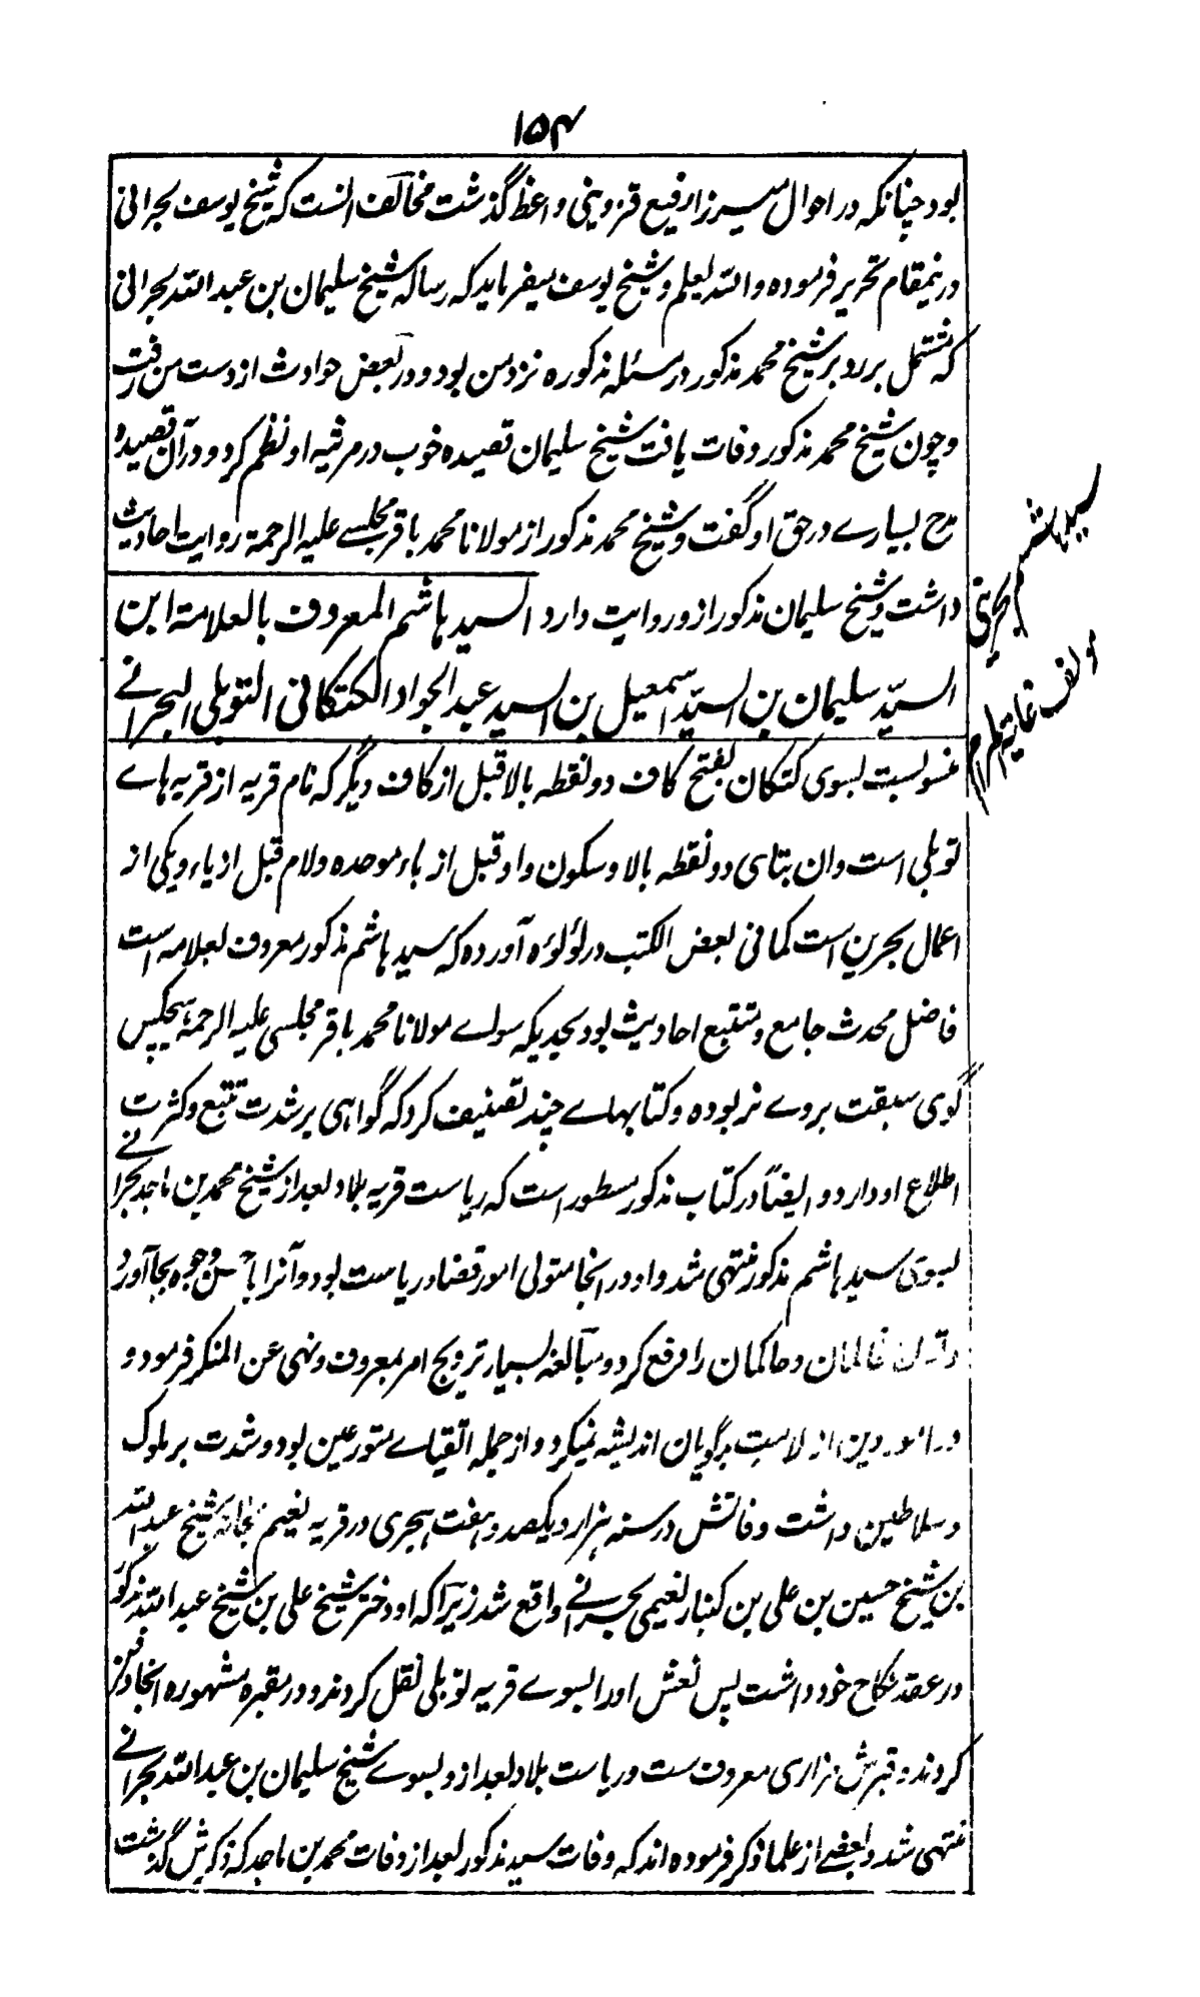 ۱۵۴
بود چنانکه در احوال میرزا رفیع قزوینی واعظ گذشت مخالف انست که شیخ یوسف بحرانی
درینمقام تحریر فرموده والله یعلم وشیخ یوسف میفرماید که رساله شیخ سلیمان بن عبدالله بحرانی
که مشتمل بر رد بر شیخ محمد مذکور در مسئله مذکوره نزد من بود و در بعض حوادث از دست من رفت
و چون شیخ محمد مذکور وفات یافت شیخ سلیمان قصیده خوب در مرثیه او نظم کرد و در آن قصیده
مدح بسیارے در حق او گفت وشیخ محمد مذکور از مولانا محمد باقر مجلسے علیه الرحمة روایت احادیث
داشت وشیخ سلیمان مذکور ازو روایت دارد السید هاشم المعروف بالعلامة ابن
السیّد سلیمان بن السیّد اسمعیل بن السید عبد الجواد الکتکانی التوبلی البحرانے
سید هاشم بحرینی
مولف غایة المرام
منسوبست بسوی کتکان بفتح کاف دو نقطه بالا قبل از کاف دیگر که نام قریه از قریه هاے
توبلی است وان بتای دو نقطه بالا وسکون واو قبل از باء موحده ولام قبل از یاء ویکی از
اعمال بحرین است کما فی بعض الکتب در لؤلؤه آورده که سید هاشم مذکور معروف بعلامه است
فاضل محدث جامع ومتتبع احادیث بود بحدیکه سواے مولانا محمد باقر مجلسی علیه الرحمة هیچکس
گوی سبقت بروے نربوده وکتابهاے چند تصنیف کرد که گواهی بر شدت تتبع وکثرت
اطلاع او دارد و ایضاً در کتاب مذکور مسطور است که ریاست قریه بلاد بعد از شیخ محمد بن ماجد بحرانے
بسوی سید هاشم مذکور منتهی شد و او در انجا متولی امور قضا وریاست بود و آنرا باحسن وجوه بجا آورد
ظالمان وحاکمان را رفع کرد و مبالغه بسیار ترویج امر بمعروف ونهی عن المنکر فرمود و
در امور دین از لامت بدگویان اندیشه نمیکرد و از جمله اتقیاے متورعین بود وشدت بر ملوک
وسلاطین داشت وفاتش در سنه هزار ویکصد وهفت هجری در قریه نعیم بخانه شیخ عبدالله
بن شیخ حسین بن علی بن کنبار نعیمی بحرانے واقع شد زیراکه او دختر شیخ علی بن شیخ عبدالله مذکور
در عقد نکاح خود داشت پس نعش او را بسوے قریه توبلی نقل کردند و در مقبره مشهوره انجا دفن
کردند وقبرش مزاری معروف ست وریاست بلاد بعد ازو بسوے شیخ سلیمان بن عبدالله بحرانے
منتهی شد وبعضے از علما ذکر فرموده اند که وفات سید مذکور بعد از وفات محمد بن ماجد که ذکرش گذشت